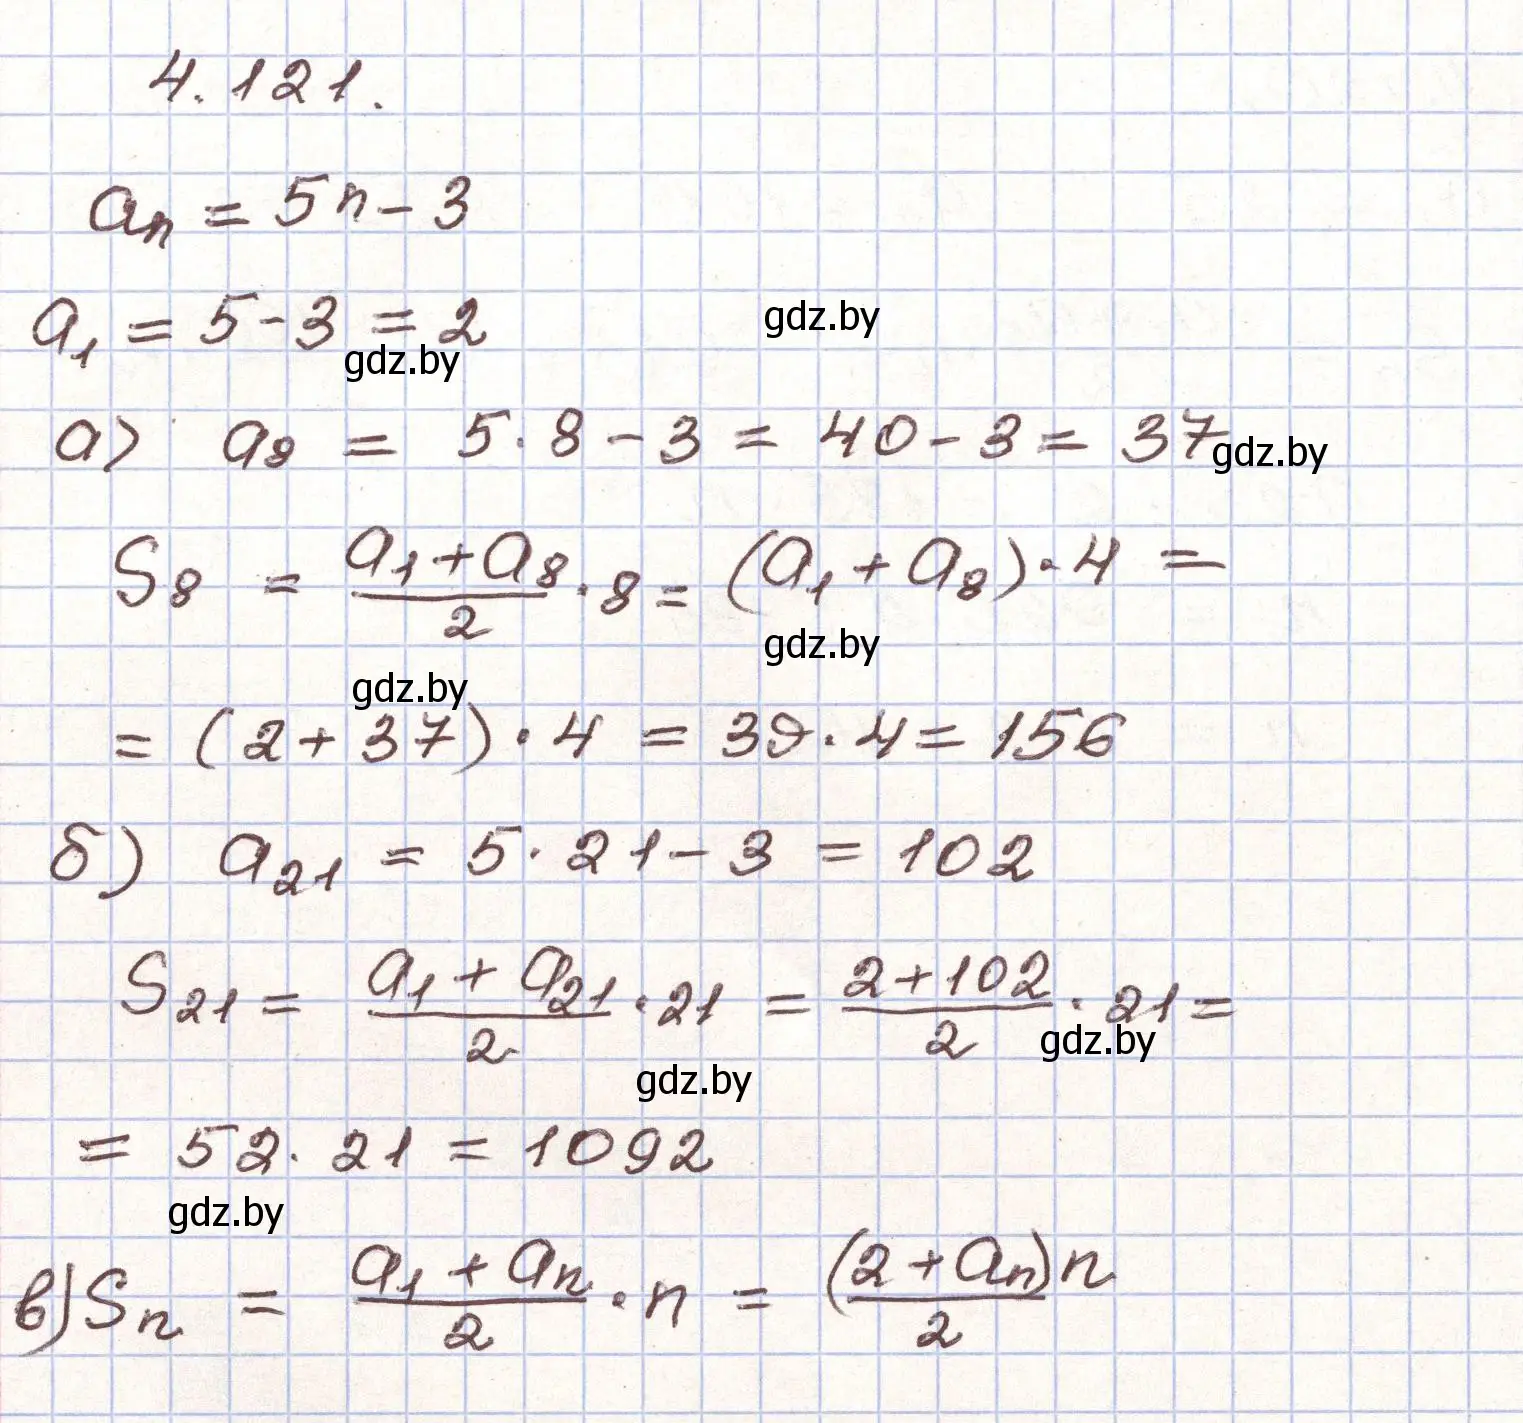 4.121.
aₙ = 5n - 3
a₁ = 5 - 3 = 2
gdz.by
gdz.by
а) a₈ = 5·8 - 3 = 40 - 3 = 37
gdz.by
S₈ = (a₁ + a₈)/2 · 8 = (a₁ + a₈)·4 =
gdz.by
gdz.by
= (2 + 37)·4 = 39·4 = 156
б) a₂₁ = 5·21 - 3 = 102
S₂₁ = (a₁ + a₂₁)/2 · 21 = (2 + 102)/2 · 21 =
gdz.by
gdz.by
= 52·21 = 1092
gdz.by
в) Sₙ = (a₁ + aₙ)/2 · n = (2 + aₙ)n/2